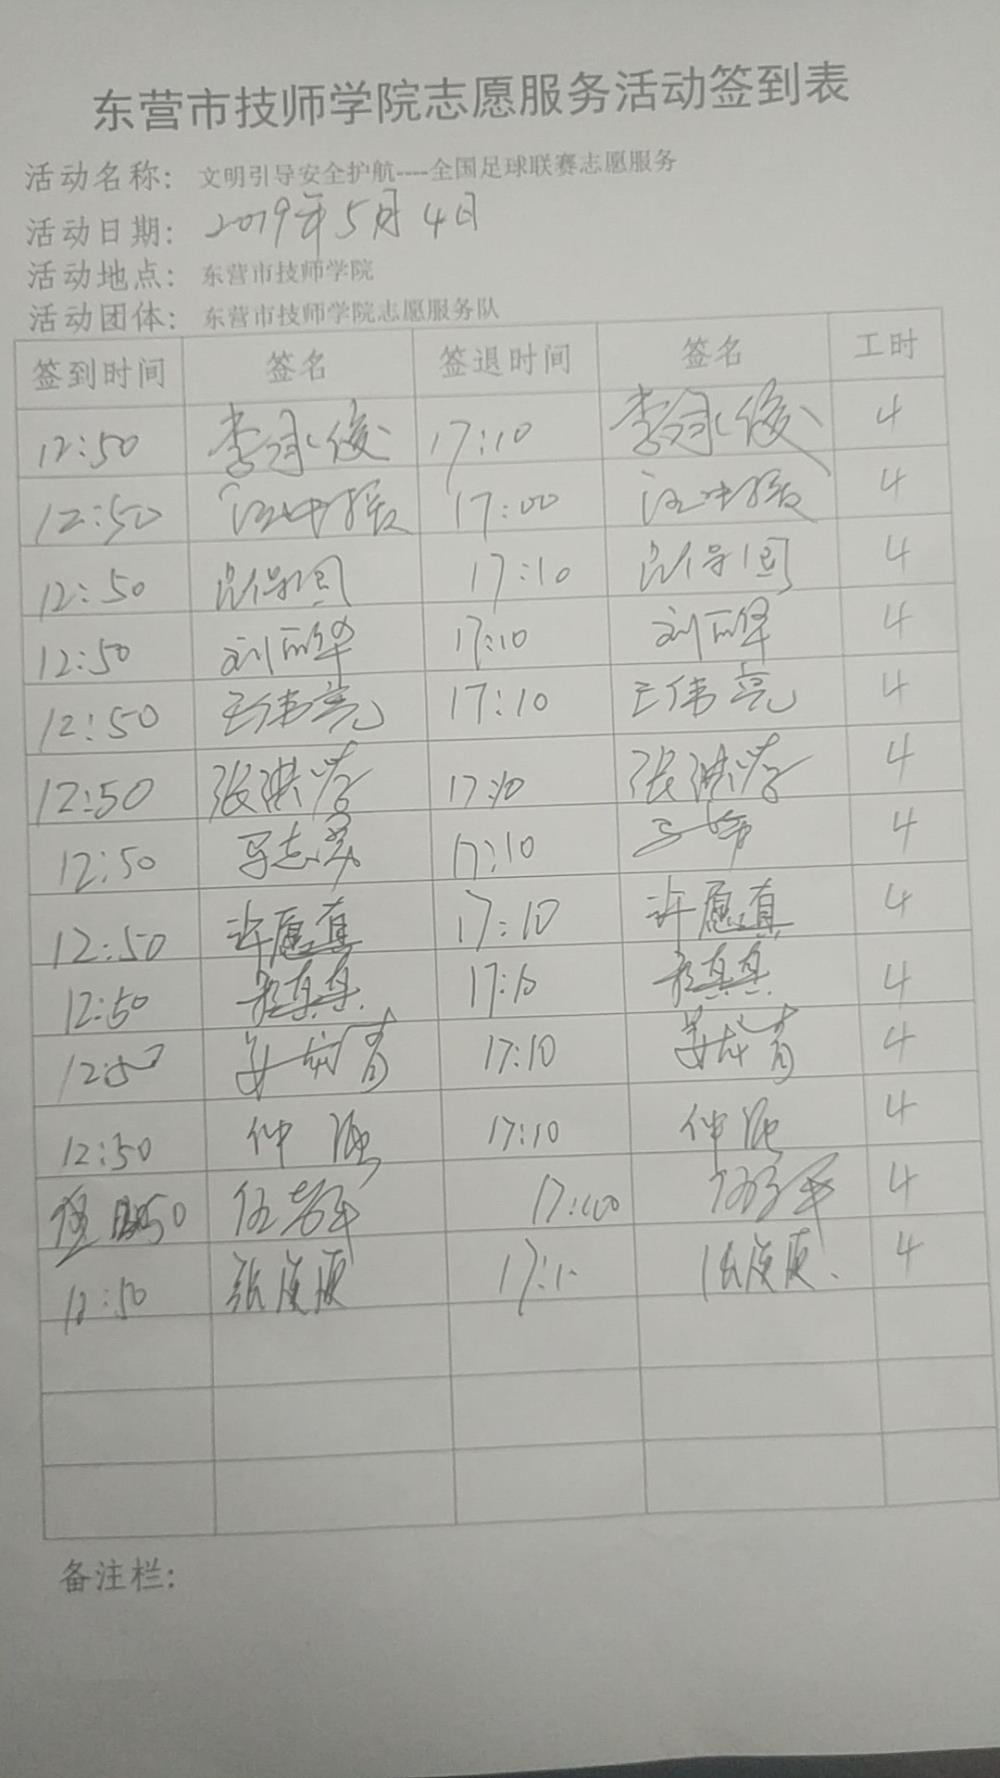 东营市技师学院志愿服务活动签到表
活动名称：文明引导安全护航----全国足球联赛志愿服务
活动日期：2019年5月4日
活动地点：东营市技师学院
活动团体：东营市技师学院志愿服务队
签到时间 签名 签退时间 签名 工时
12:50 李承俊 17:10 李承俊 4
12:50 17:00 4
12:50 17:10 4
12:50 17:10 4
12:50 王伟亮 17:10 王伟亮 4
12:50 张洪 17:10 张洪 4
12:50 17:10 4
12:50 许愿真 17:10 许愿真 4
12:50 17:10 4
12:50 姜 17:10 姜 4
12:50 仲 17:10 仲 4
50 伍 17: 4
12:50 张 17:1 张 4
备注栏：